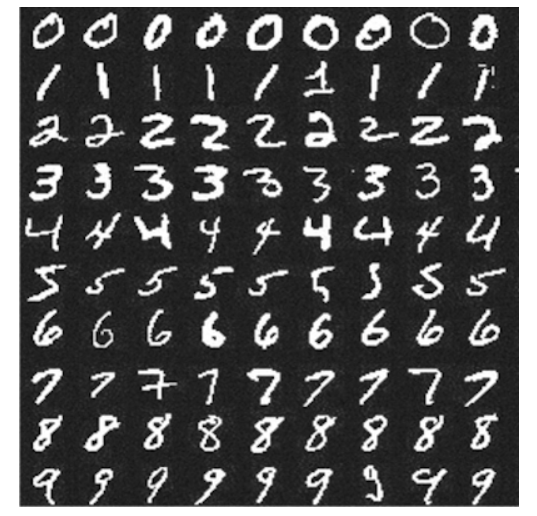 0 0 0 0 0 0 0 0 0
1 1 1 1 1 1 1 1 1
2 2 2 2 2 2 2 2 2
3 3 3 3 3 3 3 3 3
4 4 4 4 4 4 4 4 4
5 5 5 5 5 5 5 5 5
6 6 6 6 6 6 6 6 6
7 7 7 7 7 7 7 7 7
8 8 8 8 8 8 8 8 8
9 9 9 9 9 9 9 9 9